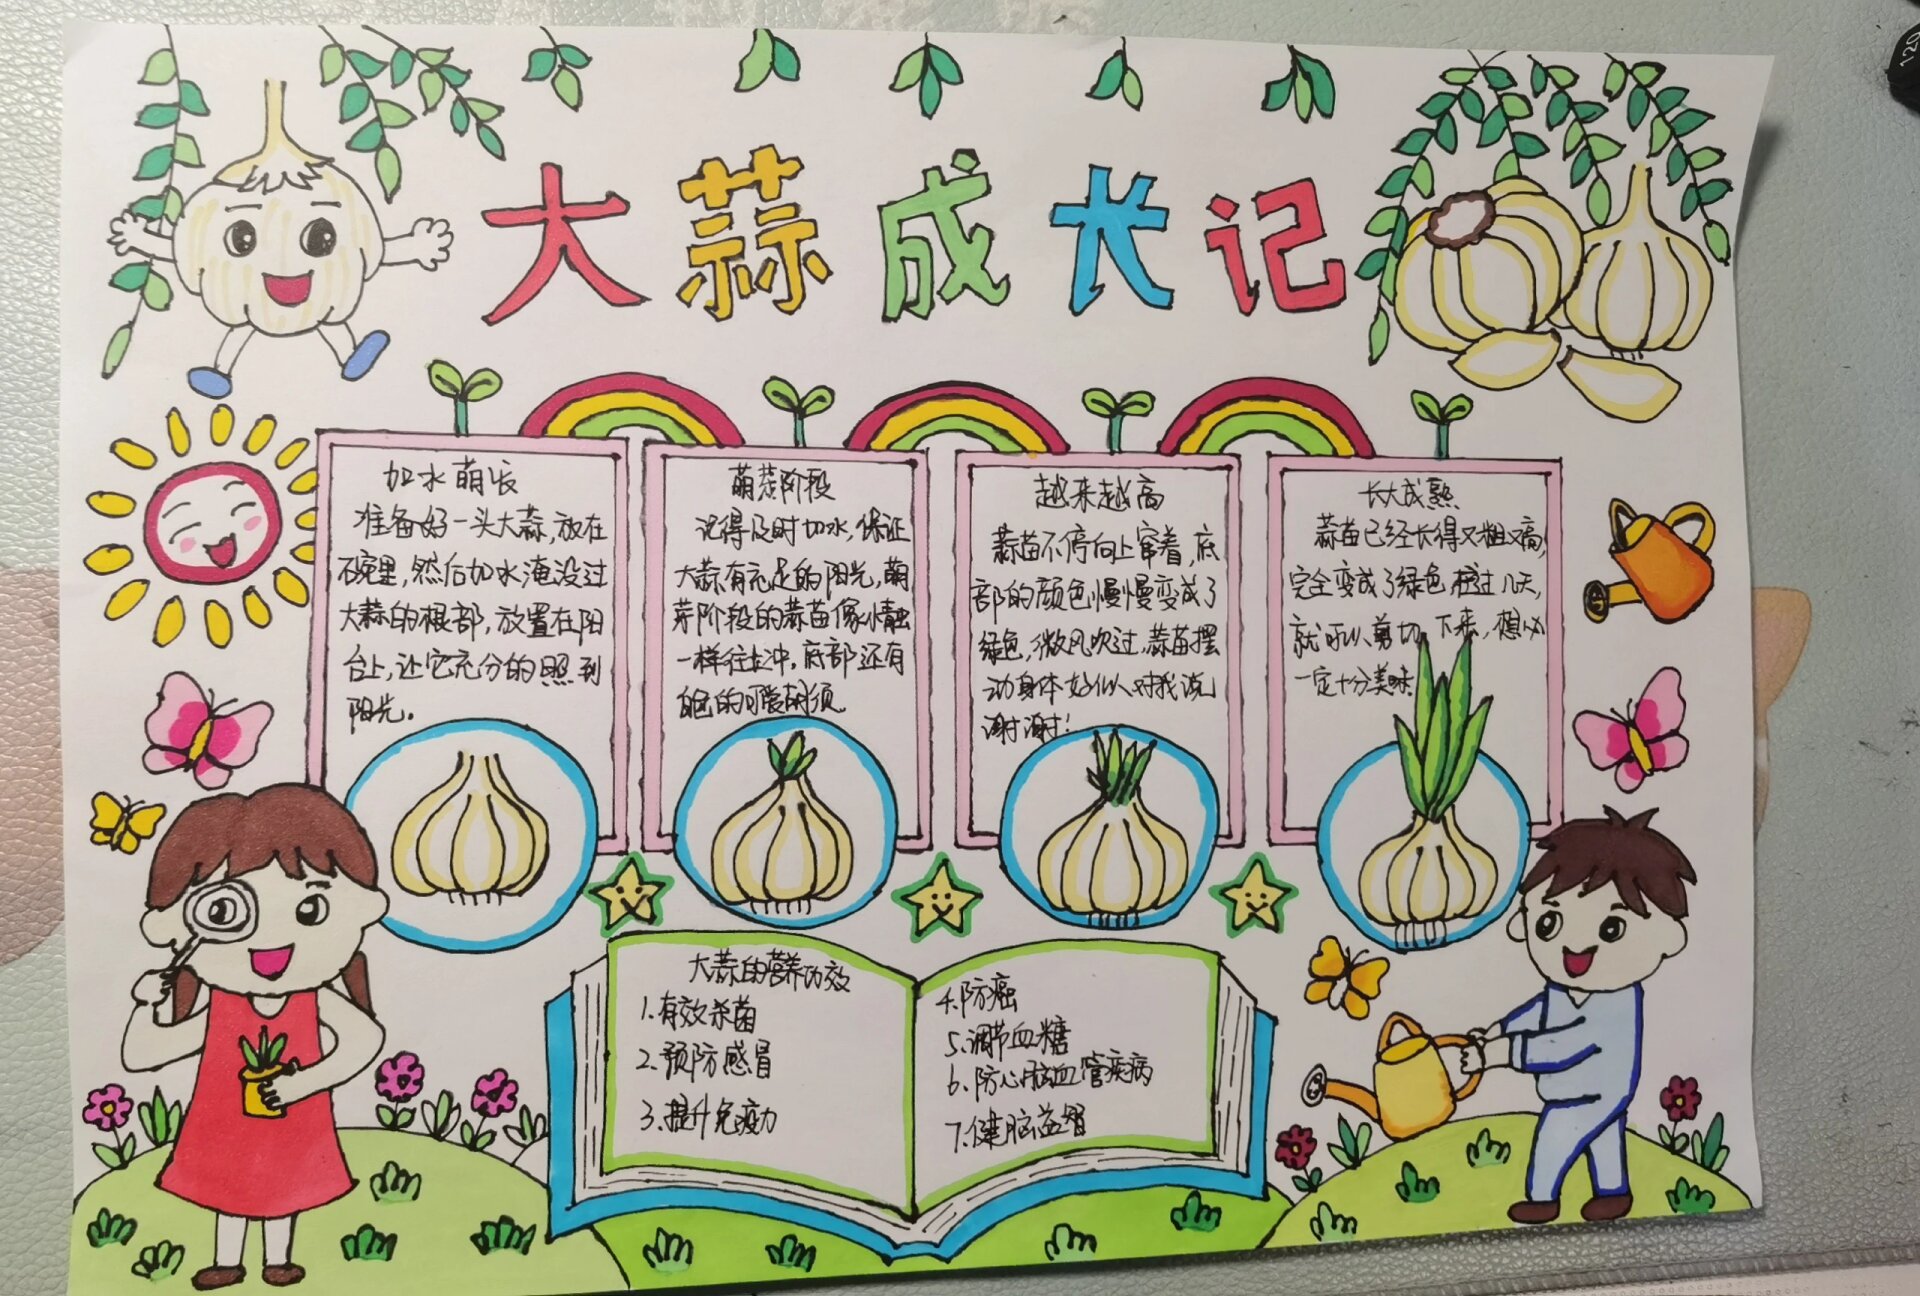 大蒜成长记
加水萌发
准备好一头大蒜,放在
碗里,然后加水淹没过
大蒜的根部,放置在阳
台上,让它充分的照到
阳光。
萌芽阶段
记得及时加水,保证
大蒜有充足的阳光,萌
芽阶段的蒜苗像小精灵
一样往上冲,底部还有
白色的可爱胡须
越来越高
蒜苗不停向上窜着,底
部的颜色慢慢变成了
绿色,微风吹过,蒜苗摆
动身体好似对我说
谢谢!
长大成熟
蒜苗已经长得又粗又高,
完全变成了绿色,在过几天,
就可以剪切下来,想必
一定十分美味
大蒜的营养功效
1.有效杀菌
2.预防感冒
3.提升免疫力
4.防癌
5.调节血糖
6.防心脑血管疾病
7.健脑益智
120